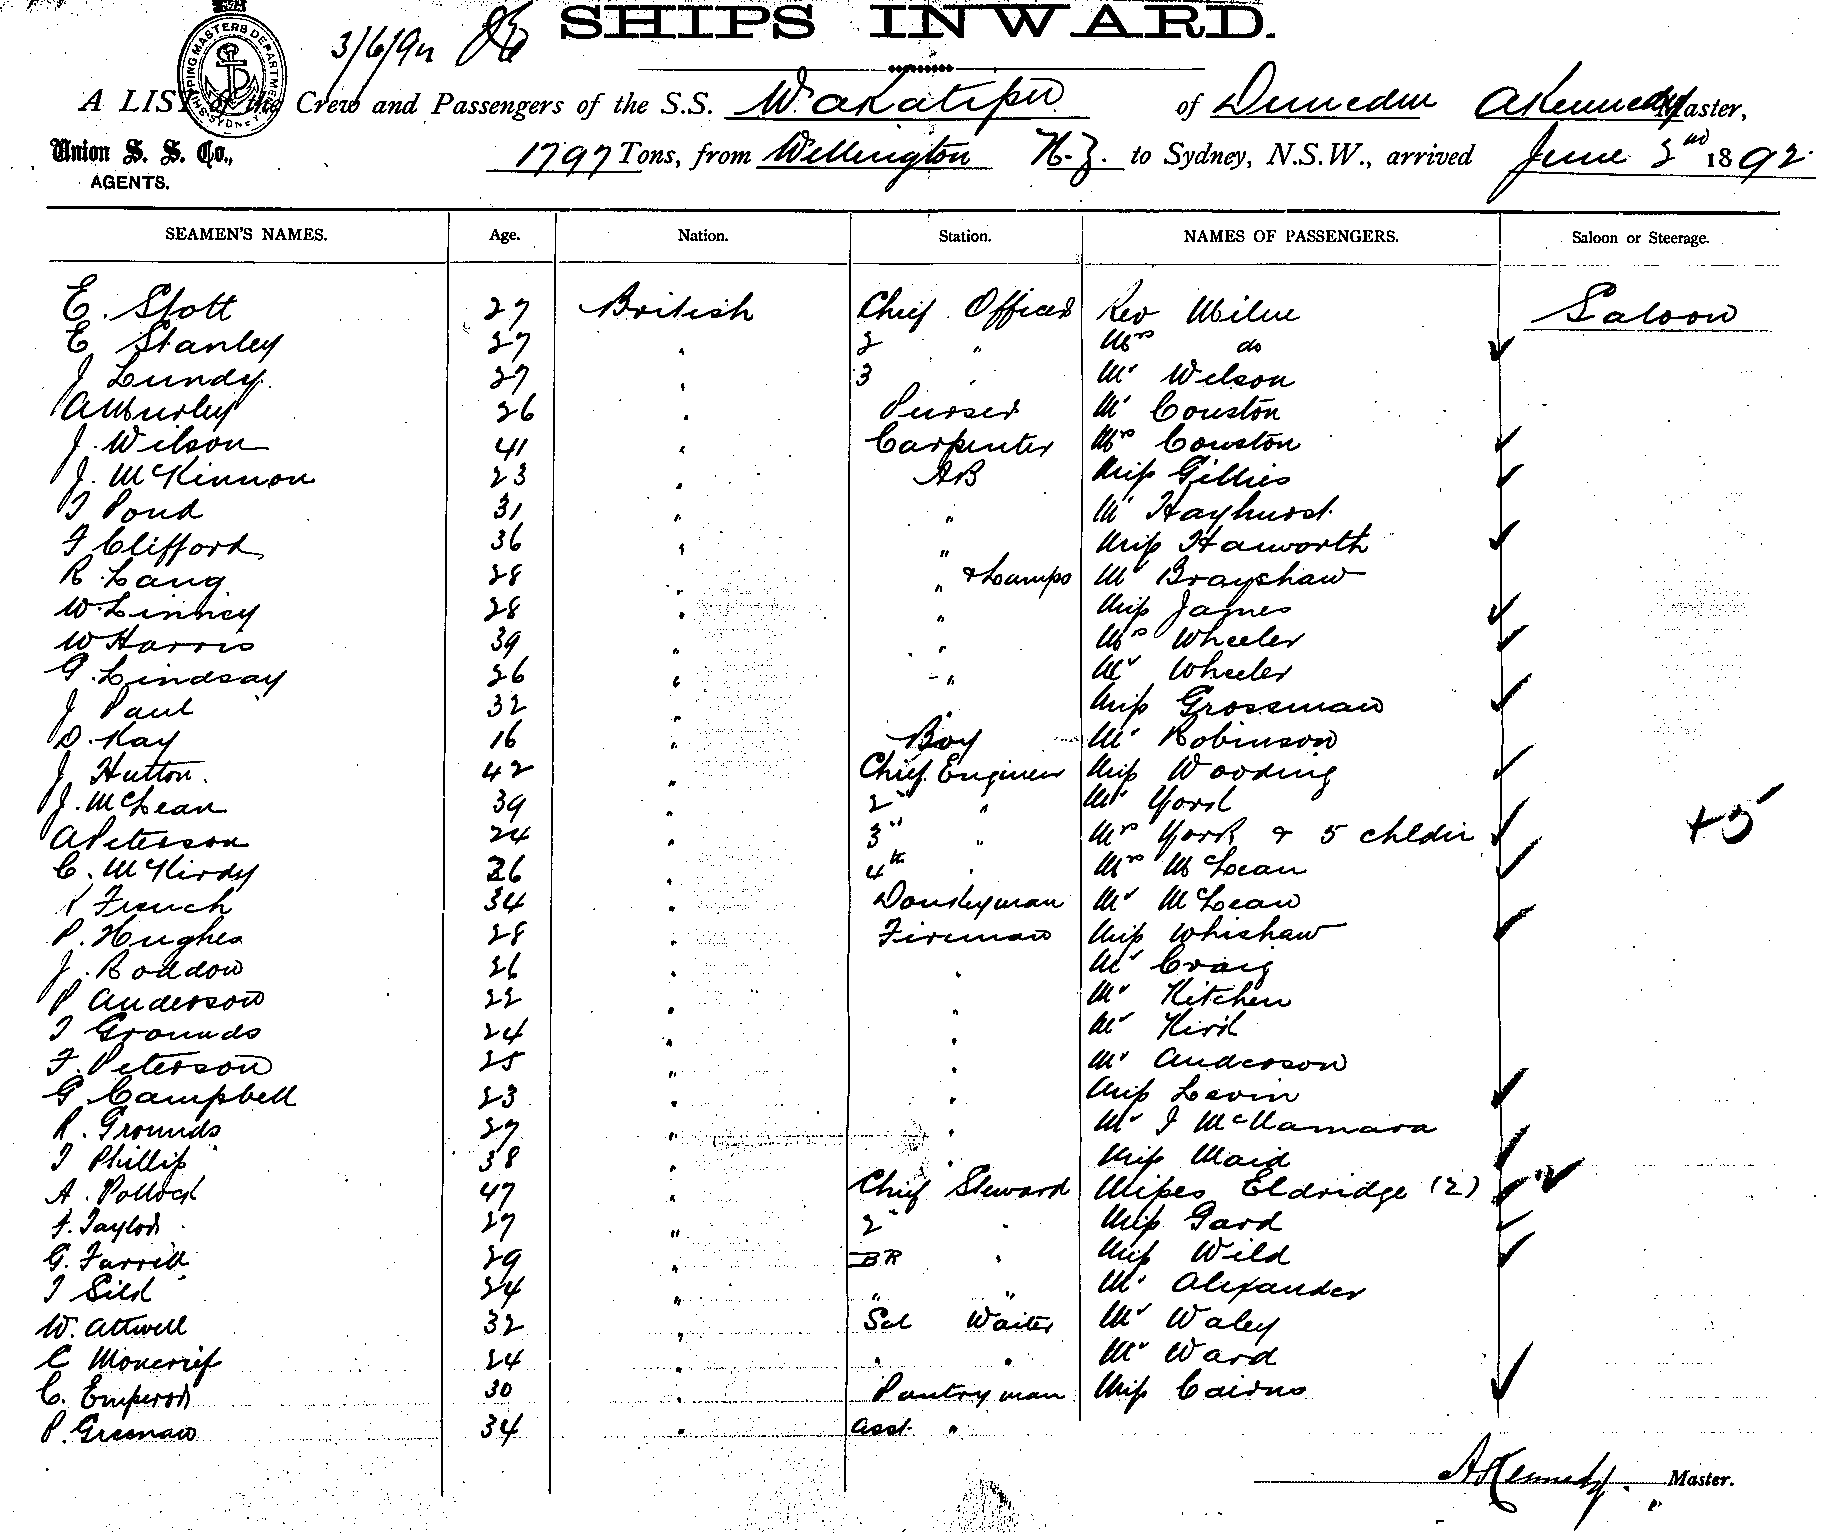 SHIPS INWARD.
3/6/92
SHIPPING MASTERS DEPARTMENT SYDNEY
A LIST of the Crew and Passengers of the S.S. Wakatipu of Dunedin AKennedy Master,
Union S. S. Co., 1797 Tons, from Wellington N.Z. to Sydney, N.S.W., arrived June 3rd 1892.
AGENTS.
SEAMEN'S NAMES. Age. Nation. Station. NAMES OF PASSENGERS. Saloon or Steerage.
E. Stott 27 British Chief Officer Rev Milne Saloon
E Stanley 27 " 2 " Mrs do
J Lundy 27 " 3 " Mr Wilson
A Burley 26 " Purser Mr Couston
J. Wilson 41 " Carpenter Mrs Couston
J. McKinnon 23 " AB Miss Gillies
T Pond 31 " " Mr Hayhurst
F Clifford 36 " " Miss Haworth
R Lang 28 " " & Lamps Mr Brayshaw
W. Linney 28 " " Miss James
W Harris 39 " " Mrs Wheeler
G. Lindsay 26 " " Mr Wheeler
J Paul 32 " " Miss Grossman
D. Kay 16 " Boy Mr Robinson
J Hutton. 42 " Chief Engineer Miss Wooding
J. McLean 39 " 2" " Mr York
A Peterson 24 " 3" " Mrs York & 5 childn +5
C. McKirdy 26 " 4th " Mrs McLean
R French 34 " Donkeyman Mr McLean
P. Hughes 28 " Fireman Miss Whishaw
J. Roddow 26 " " Mr Craig
P Anderson 22 " " Mr Kitchen
T Grounds 24 " " Mr Kirk
F. Peterson 25 " " Mr Anderson
G Campbell 23 " " Miss Levin
R. Grounds 27 " " Mr J McNamara
T Phillip 38 " " Miss Maid
A. Pollock 47 " Chief Steward Misses Eldridge (2) 2
F. Taylor 27 " 2" " Miss Gard
G. Farrell 29 " BR " Miss Wild
T Sild 24 " " " Mr Alexander
W. Attwell 32 " Sal Waiter Mr Waley
C Moncrief 24 " " " Mr Ward
C. Emperor 30 " Pantryman Miss Cairns
P. Greenaw 34 " asst. "
AKennedy. Master.